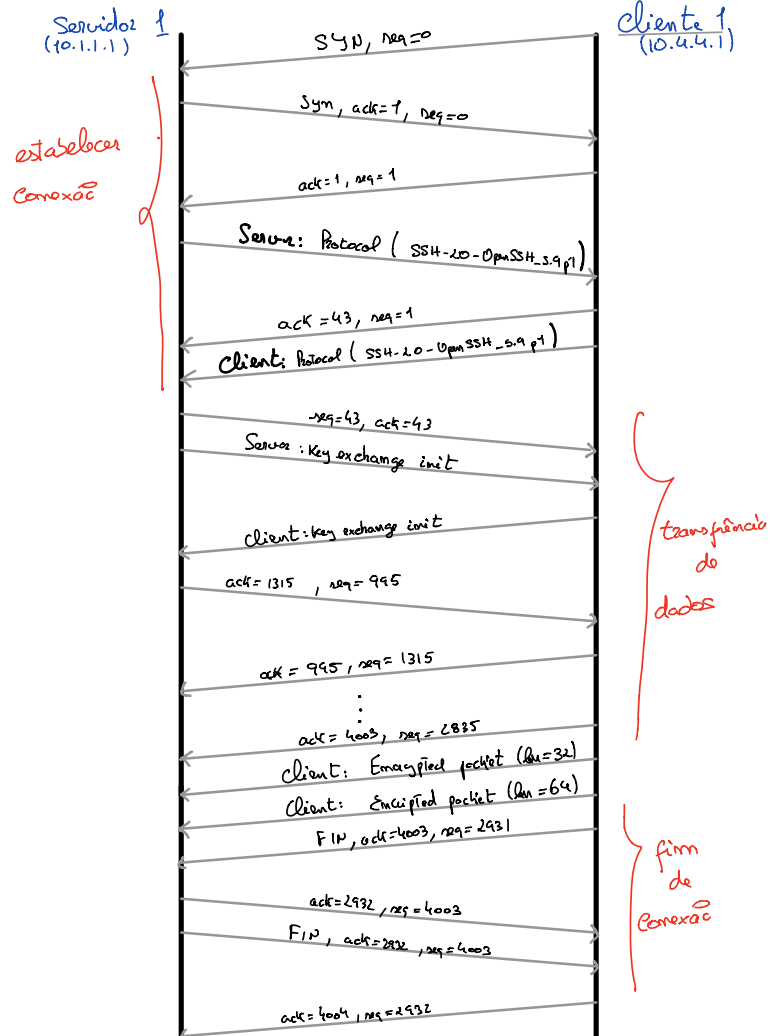 Servidor 1
(10.1.1.1)
Cliente 1
(10.4.4.1)
SYN, seq=0
Syn, ack=1, seq=0
estabelecer
conexão
ack=1, seq=1
Server: Protocol ( SSH-2.0-OpenSSH_5.9p1)
ack=43, seq=1
Client: Protocol ( SSH-2.0-OpenSSH_5.9p1)
seq=43, ack=43
Server: Key exchange init
Client: Key exchange init
transfrência
de
dados
ack=1315, seq=995
ack=995, seq=1315
ack=4003, seq=2835
Client: Encrypted packet (len=32)
Client: Encripted packet (len=64)
FIN, ack=4003, seq=2931
fim
de
conexão
ack=2932, seq=4003
FIN, ack=2932, seq=4003
ack=4004, seq=2932